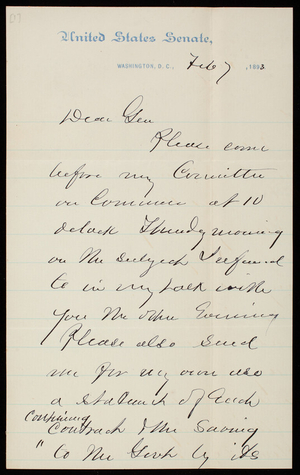 [1]
United States Senate,
WASHINGTON, D. C., Feb 7, 1893
Dear Gen
Please come
before my Committee
on Commerce at 10
oclock Thursday morning
on the subject I refered
to in my talk with
you the other Evening
Please also send
me for my own use
a statement of Each
Contract & the saving
to the Govt by its